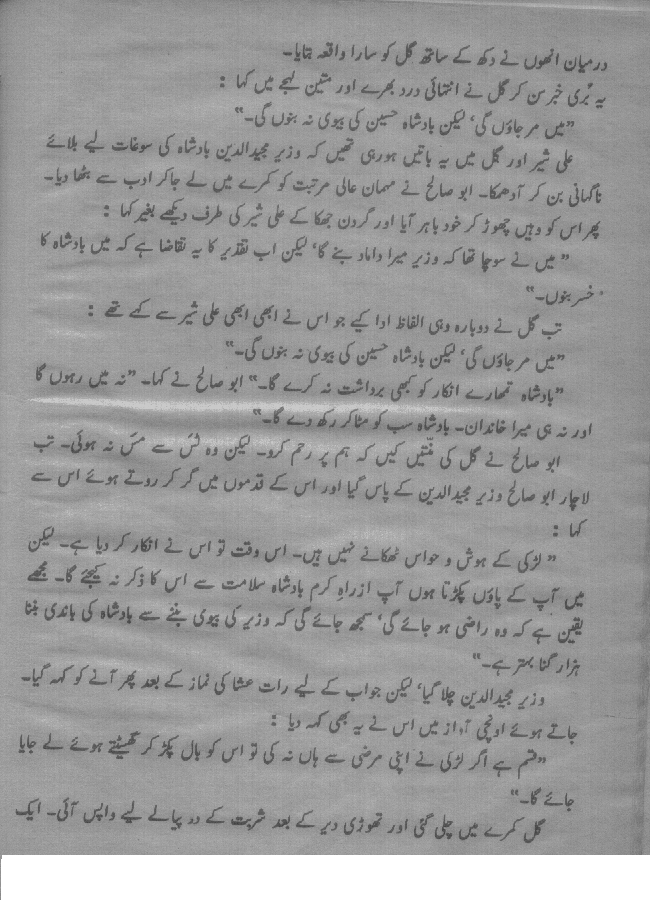 درمیان انھوں نے دکھ کے ساتھ گل کو سارا واقعہ بتایا۔
یہ بُری خبر سن کر گل نے انتہائی درد بھرے اور متین لہجے میں کہا :
”میں مر جاؤں گی‘ لیکن بادشاہ حسین کی بیوی نہ بنوں گی۔“
علی شیر اور گل میں یہ باتیں ہو رہی تھیں کہ وزیر مجیدالدین بادشاہ کی سوغات لیے بلائے
ناگہانی بن کر آدھمکا۔ ابو صالح نے مہمان عالی مرتبت کو کمرے میں لے جاکر ادب سے بٹھا دیا۔
پھر اس کو وہیں چھوڑ کر خود باہر آیا اور گردن جھکا کے علی شیر کی طرف دیکھے بغیر کہا :
”میں نے سوچا تھا کہ وزیر میرا داماد بنے گا‘ لیکن اب تقدیر کا یہ تقاضا ہے کہ میں بادشاہ کا
خسر بنوں۔“
تب گل نے دوبارہ وہی الفاظ ادا کیے جو اس نے ابھی ابھی علی شیر سے کہے تھے :
”میں مر جاؤں گی‘ لیکن بادشاہ حسین کی بیوی نہ بنوں گی۔“
”بادشاہ تمھارے انکار کو کبھی برداشت نہ کرے گا۔“ ابو صالح نے کہا۔ ”نہ میں رہوں گا
اور نہ ہی میرا خاندان۔ بادشاہ سب کو مٹا کر رکھ دے گا۔“
ابو صالح نے گل کی منّتیں کیں کہ ہم پر رحم کرو۔ لیکن وہ ٹس سے مس نہ ہوئی۔ تب
لاچار ابو صالح وزیر مجیدالدین کے پاس گیا اور اس کے قدموں میں گر کر روتے ہوئے اس سے
کہا :
”لڑکی کے ہوش و حواس ٹھکانے نہیں ہیں۔ اس وقت تو اس نے انکار کر دیا ہے۔ لیکن
میں آپ کے پاؤں پکڑتا ہوں آپ ازراہِ کرم بادشاہ سلامت سے اس کا ذکر نہ کیجئے گا۔ مجھے
یقین ہے کہ وہ راضی ہو جائے گی‘ سمجھ جائے گی کہ وزیر کی بیوی بننے سے بادشاہ کی باندی بننا
ہزار گنا بہتر ہے۔“
وزیر مجیدالدین چلا گیا‘ لیکن جواب کے لیے رات عشا کی نماز کے بعد پھر آنے کو کہہ گیا۔
جاتے ہوئے اونچی آواز میں اس نے یہ بھی کہہ دیا :
”قسم ہے اگر لڑکی نے اپنی مرضی سے ہاں نہ کی تو اس کو بال پکڑ کر گھسیٹتے ہوئے لے جایا
جائے گا۔“
گل کمرے میں چلی گئی اور تھوڑی دیر کے بعد شربت کے دو پیالے لیے واپس آئی۔ ایک